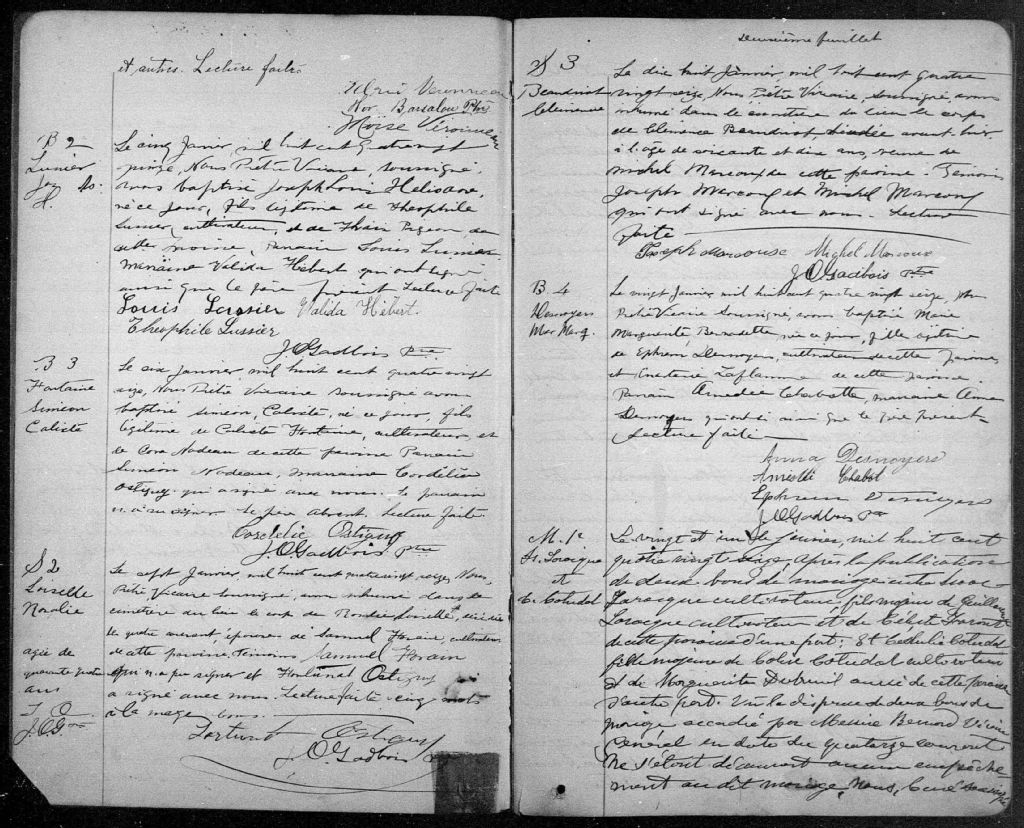 et autres. Lecture faite
Nor. Barsalou Ptre
Moïse
B 2
Lussier
Jos. Ls.
H.
Le cinq Janvier, mil huit cent quatre vingt
seize, Nous Prêtre Vicaire, soussigné,
avons baptisé Joseph Louis Heliodore,
né ce jour, fils légitime de Theophile
Lussier cultivateur, et de Pageon de
cette paroisse, Parrain Louis Lussier
Marraine Valida Hébert qui ont signé
ainsi que le père present Lecture faite
Louis Lussier Valida Hébert.
Theophile Lussier
J.O. Gadbois Ptre
B 3
Fontaine
Siméon
Caliste
Le six janvier mil huit cent quatre vingt
seize, Nous Prêtre Vicaire soussigné avons
baptisé Siméon, Caliste, né ce jour, fils
légitime de Caliste Fontaine, cultivateur, et
de Cora Nadeau de cette paroisse Parrain
Siméon Nadeau, marraine Cordélie
Ostiguy qui a signé avec nous. Le parrain
n'a su signer le père absent. Lecture faite.
Cordelie Ostiguy
J.O. Gadbois Ptre
S 2
Loiselle
Neralie
agée de
quarante quatre
ans
J. O.
J.O.G. Ptre
Le sept Janvier, mil huit cent quatre vingt seize, Nous,
Prêtre Vicaire soussigné, avons inhumé dans le
cimetière du lieu le corps de Loiselle, décédée
le quatre courant, épouse de Samuel Forain, cultivateur
de cette paroisse, Témoins Samuel Forain
qui n'a pu signer et Fortunat Ostiguy qui
a signé avec nous. Lecture faite cinq mots
à la marge bons.
Fortunat Ostiguy
J.O. Gadbois Ptre
Deuxième feuillet
S 3
Beaudriot
Clémence
Le dix huit Janvier, mil huit cent quatre
vingt seize, Nous, Prêtre Vicaire, soussigné, avons
inhumé dans le cimetière du lieu le corps
de Clémence Beaudriot décédée avant hier
à l'age de soixante et dix ans, veuve de
Michel Marcoux de cette paroisse. Temoins
Joseph Marcoux et Michel Marcoux
qui ont signé avec nous. Lecture
faite
Joseph Marcouse Michel Marcoux
J.O. Gadbois Ptre
B 4
Desnoyers
Mar. Marg.
Le vingt Janvier mil huit cent quatre vingt seize, Nous
Prêtre Vicaire Soussigné, avons baptisé Marie
Marguerite, Bernadette, née ce jour, fille légitime
de Ephrem Desnoyers, cultivateur de cette paroisse,
et Laflamme de cette paroisse.
Parrain Amedée Chabotte, marraine Anna
Desnoyers qui ont signé ainsi que le père present
Lecture faite
Anna Desnoyers
Chabot
Ephrem Desnoyers
J.O. Gadbois Ptre
M. 1e
Is. Laroque
et
C. Cotudal
Le vingt et un de janvier, mil huit cent
quatre vingt seize, après la publication
de deux bans de mariage entre Isaac
Larocque cultivateur, fils majeur de Guillaume
Larocque cultivateur et de
de cette paroisse d'une part: Et Cédulie Cotudal
fille majeure de Colin Cotudal cultivateur
et de Marguerite Dubreuil aussi de cette paroisse
d'autre part. Vu la dispense de deux bans de
mariage accordée par Messire Bernard Vicaire
Général en date du quatorze courant
Ne s'étant découvert aucun empêche
ment au dit mariage, Nous, Curé soussigné